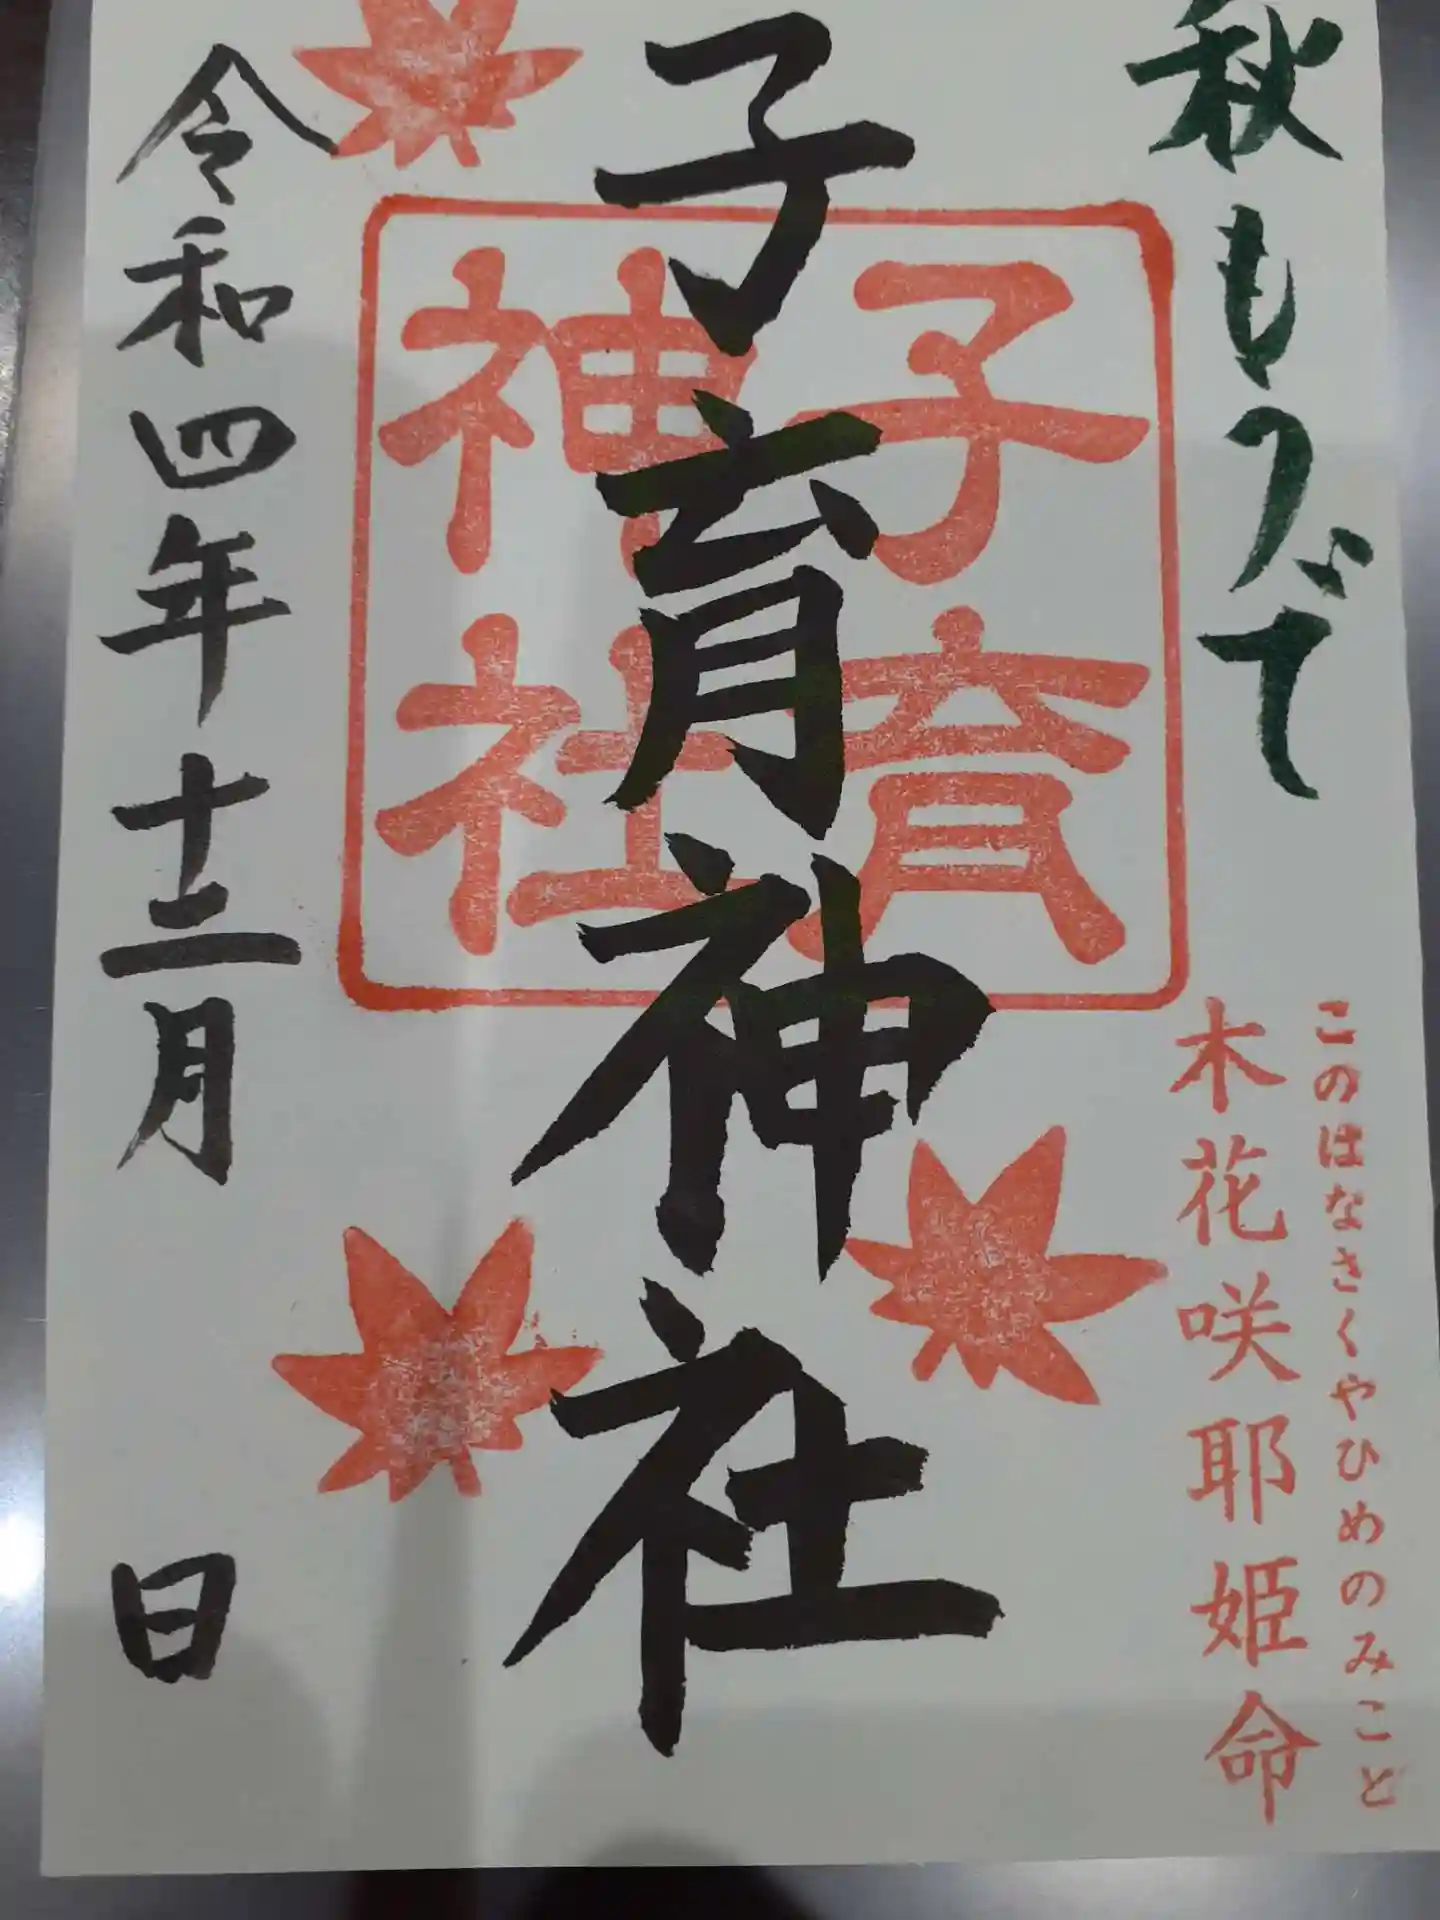 秋もうで
このはなさくやひめのみこと
木花咲耶姫命
子育
神社
子育神社
令和四年十二月
日